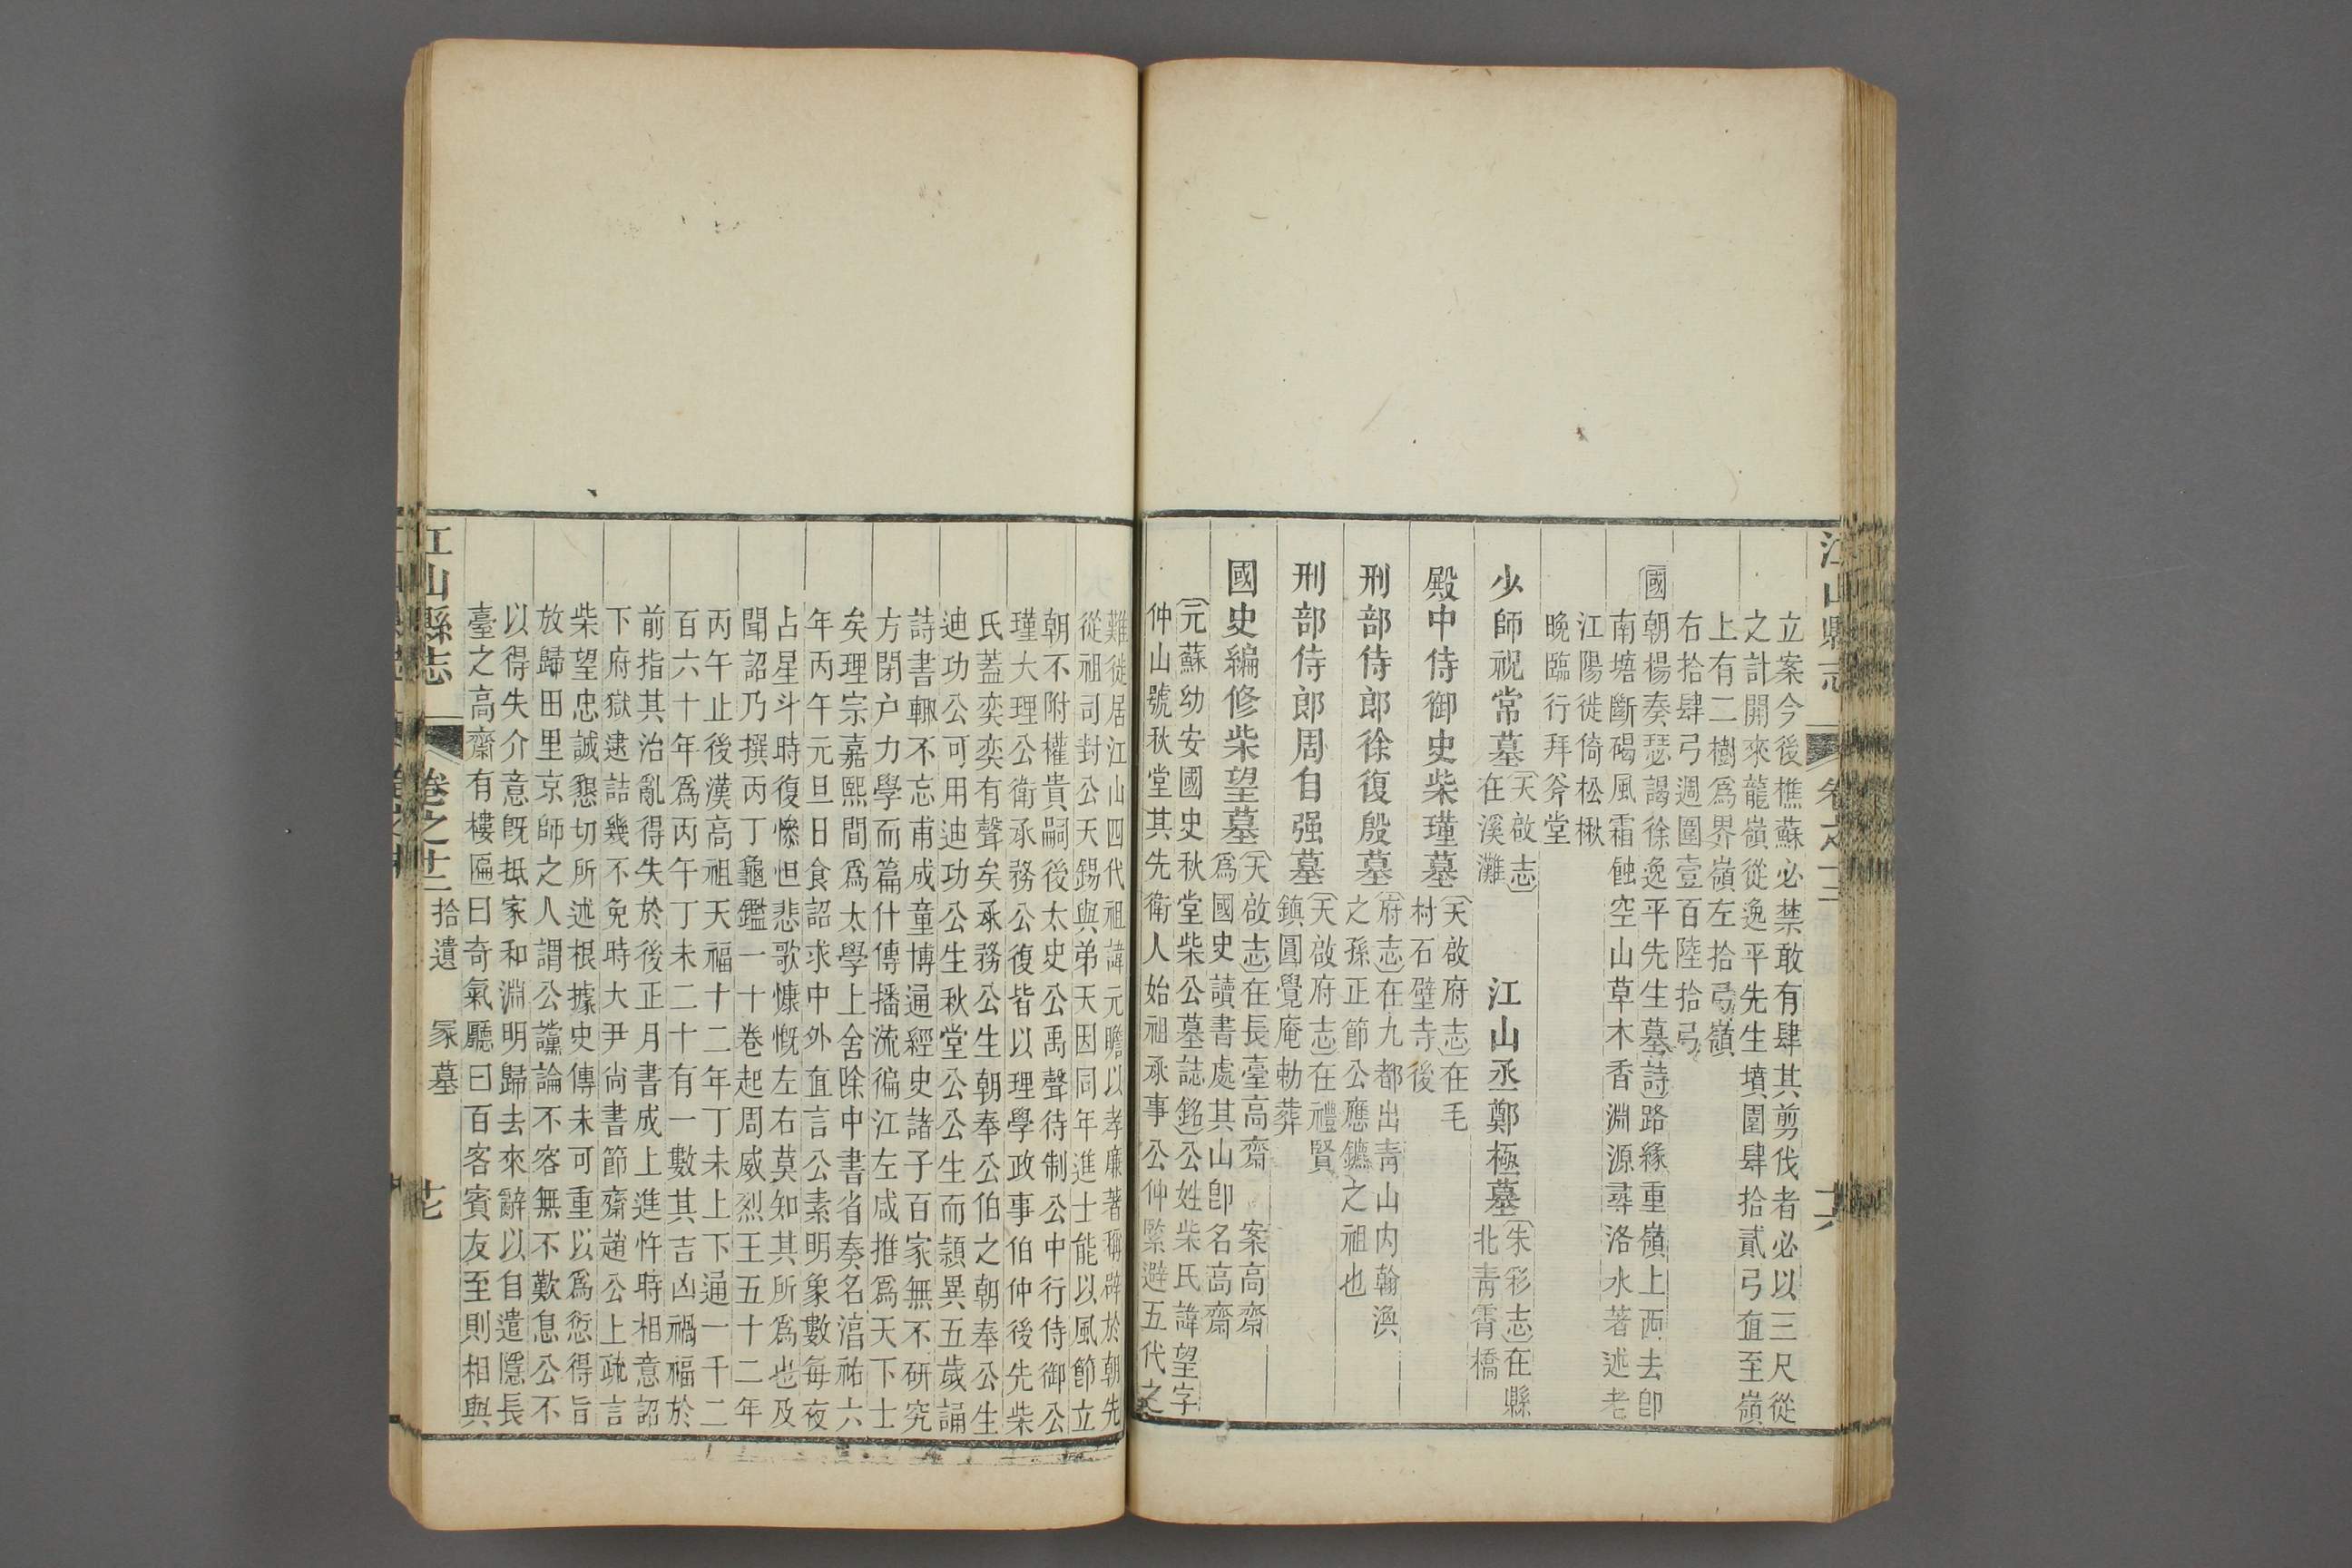 立案今後樵蘇必禁敢有肆其剪伐者必以三尺從
之計開來龍嶺從逸平先生墳圍肆拾貳弓直至嶺
上有二樹爲界嶺左拾弓嶺
右拾肆弓週圍壹百陸拾弓
國朝楊奏瑟謁徐逸平先生墓詩路緣重嶺上西去卽
南塘斷碣風霜蝕空山草木香淵源尋洛水著述老
江陽徙倚松楸
晚臨行拜斧堂
少師祝常墓
天啟志
在溪灘
江山丞鄭極墓
朱彩志在縣
北靑霄橋
殿中侍御史柴瑾墓
天啟府志在毛
村石壁寺後
刑部侍郎徐復殷墓
府志在九都出靑山內翰渙
之孫正節公應鑣之祖也
刑部侍郎周自强墓
天啟府志在禮賢
鎮圓覺庵勅葬
國史編修柴望墓
天啟志在長臺高齋 案高齋
爲國史讀書處其山卽名高齋
元蘇幼安國史秋堂柴公墓誌銘公姓柴氏諱望字
仲山號秋堂其先衛人始祖承事公仲緊避五代之
難徙居江山四代祖諱元瞻以孝廉著稱辟於朝先
從祖司封公天錫與弟天因同年進士能以風節立
朝不附權貴嗣後太史公禹聲待制公中行侍御公
瑾大理公衛承務公復皆以理學政事伯仲後先柴
氏蓋奕奕有聲矣承務公生朝奉公伯之朝奉公生
迪功公可用迪功公生秋堂公公生而頴異五歲誦
詩書輙不忘甫成童博通經史諸子百家無不硏究
方閉户力學而篇什傳播流徧江左咸推爲天下士
矣理宗嘉熙間爲太學上舍除中書省奏名淳祐六
年丙午元旦日食詔求中外直言公素明象數每夜
占星斗時復慘怛悲歌慷慨左右莫知其所爲也及
聞詔乃撰丙丁龜鑑一十卷起周威烈王五十二年
丙午止後漢高祖天福十二年丁未上下通一千二
百六十年爲丙午丁未二十有一數其吉凶禍福於
前指其治亂得失於後正月書成上進忤時相意詔
下府獄逮詰幾不免時大尹尙書節齋趙公上疏言
柴望忠誠懇切所述根據史傳未可重以爲愆得旨
放歸田里京師之人謂公讜論不容無不歎息公不
以得失介意旣抵家和淵明歸去來辭以自遣隱長
臺之高齋有樓匾曰奇氣廳曰百客賓友至則相與
江山縣志 卷之十二 拾遺 冢墓